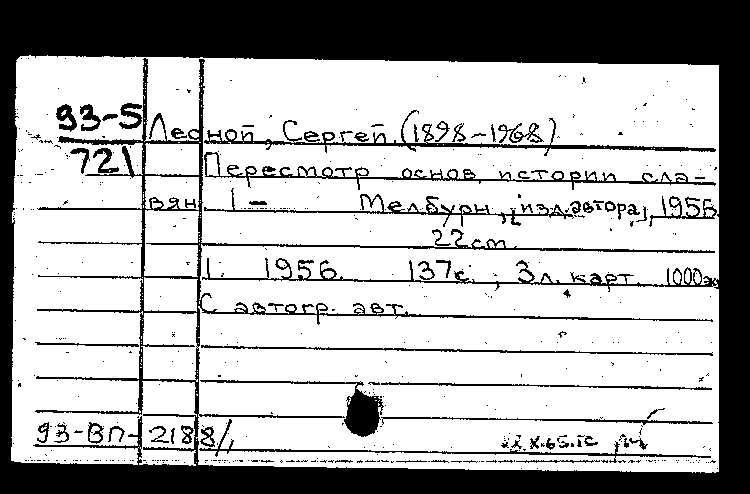 93-5
721
Лесной, Сергей. (1898-1968)
Пересмотр основ истории сла-
вян. 1 - Мелбурн, [изд. автора], 1956.
22 см.
1. 1956. 137 с., 3 л. карт. 1000 э
С автогр. авт.
93-ВП-2188/1